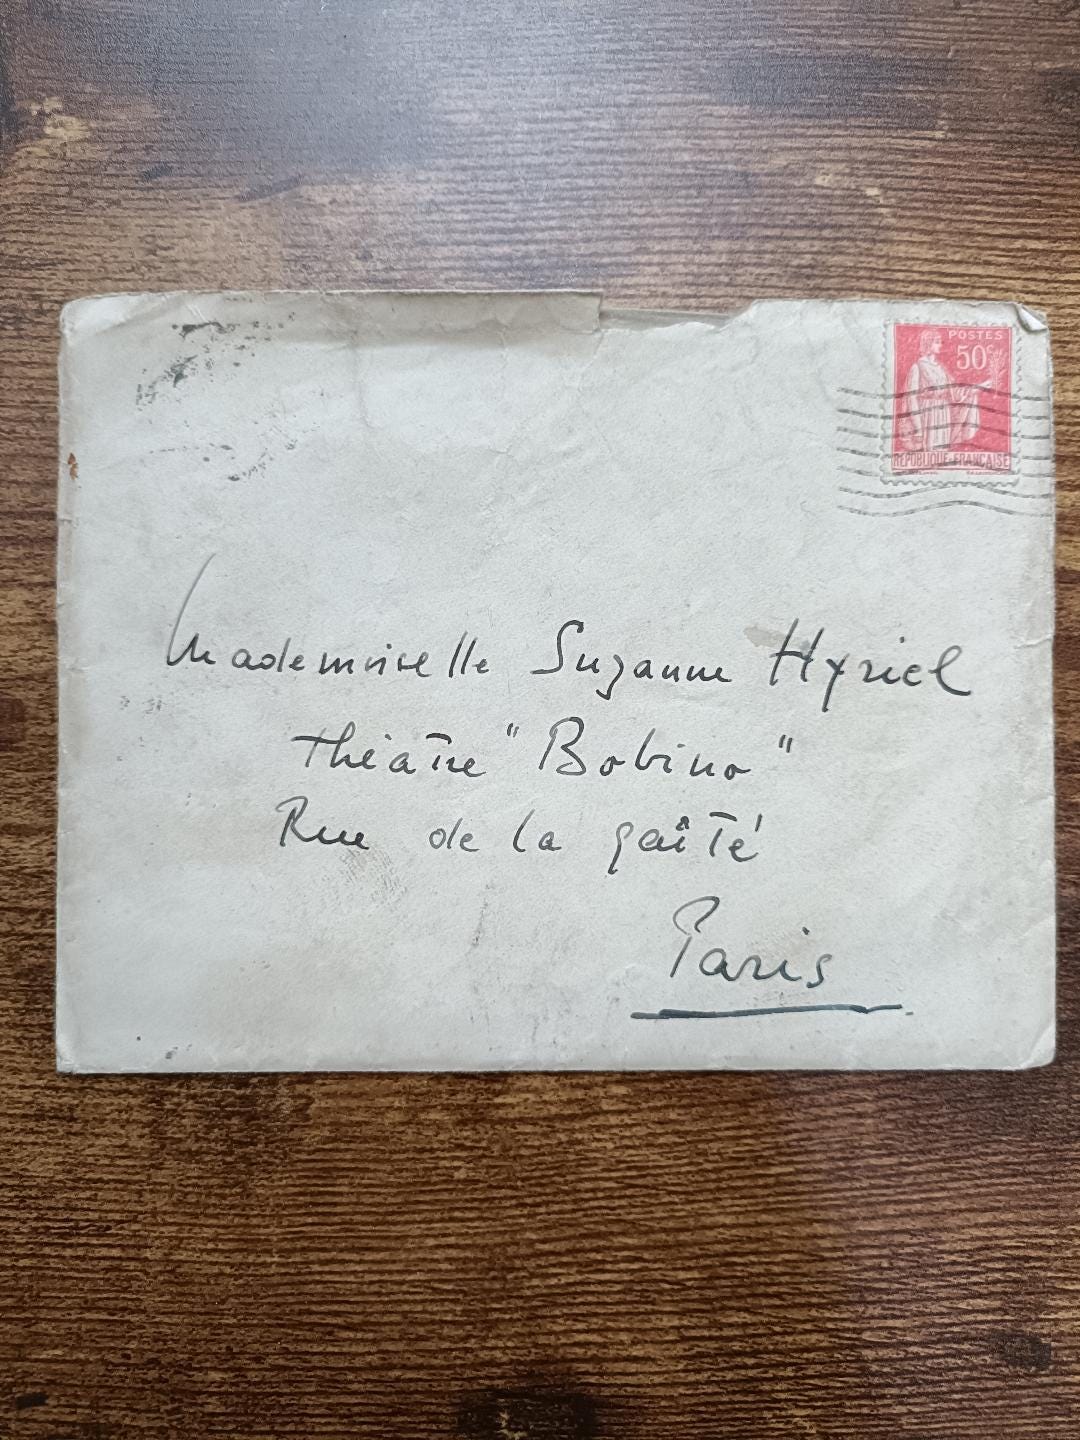 POSTES
50c
REPUBLIQUE FRANCAISE
Mademoiselle Suzanne Hyriel
théâtre "Bobino"
Rue de la gaîté
Paris